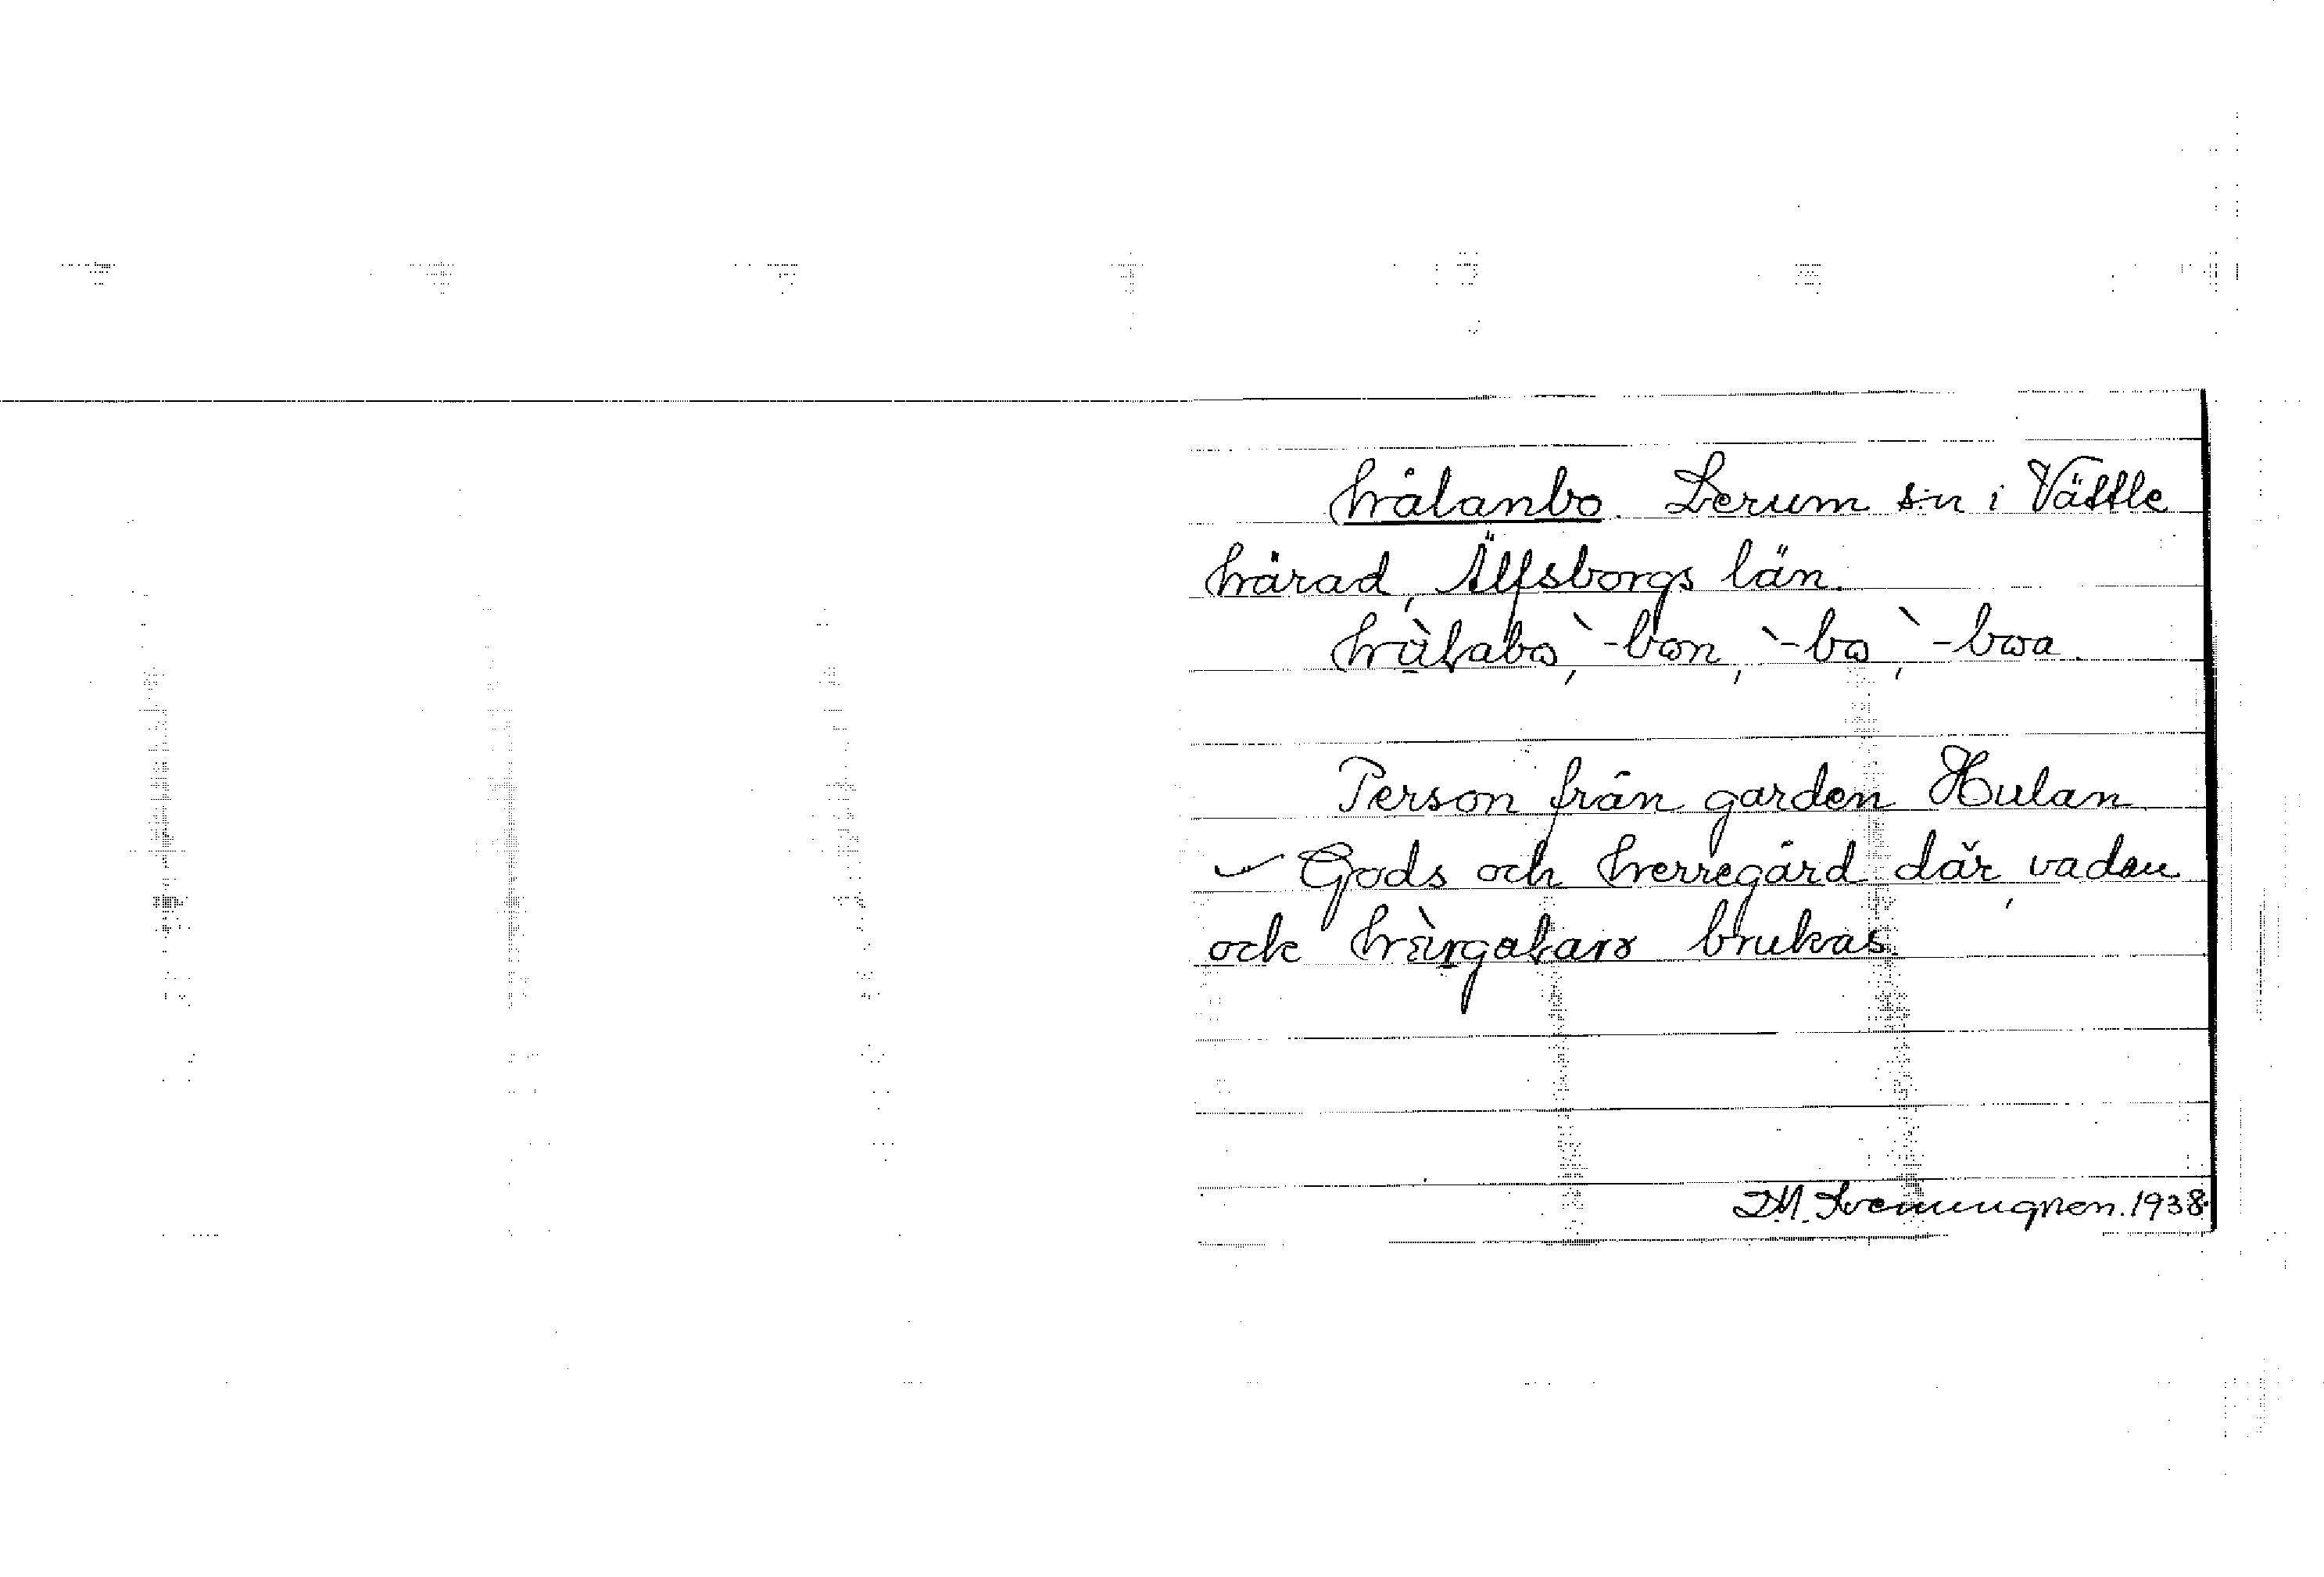 hålanbo. Lerum s:n i Vättle
härad, Älfsborgs län.
hùlabo, `-bon, `-bo, `-boa.
Person från gården Hulan
Gods och herregård där, vadan
ock brukas.
1938.